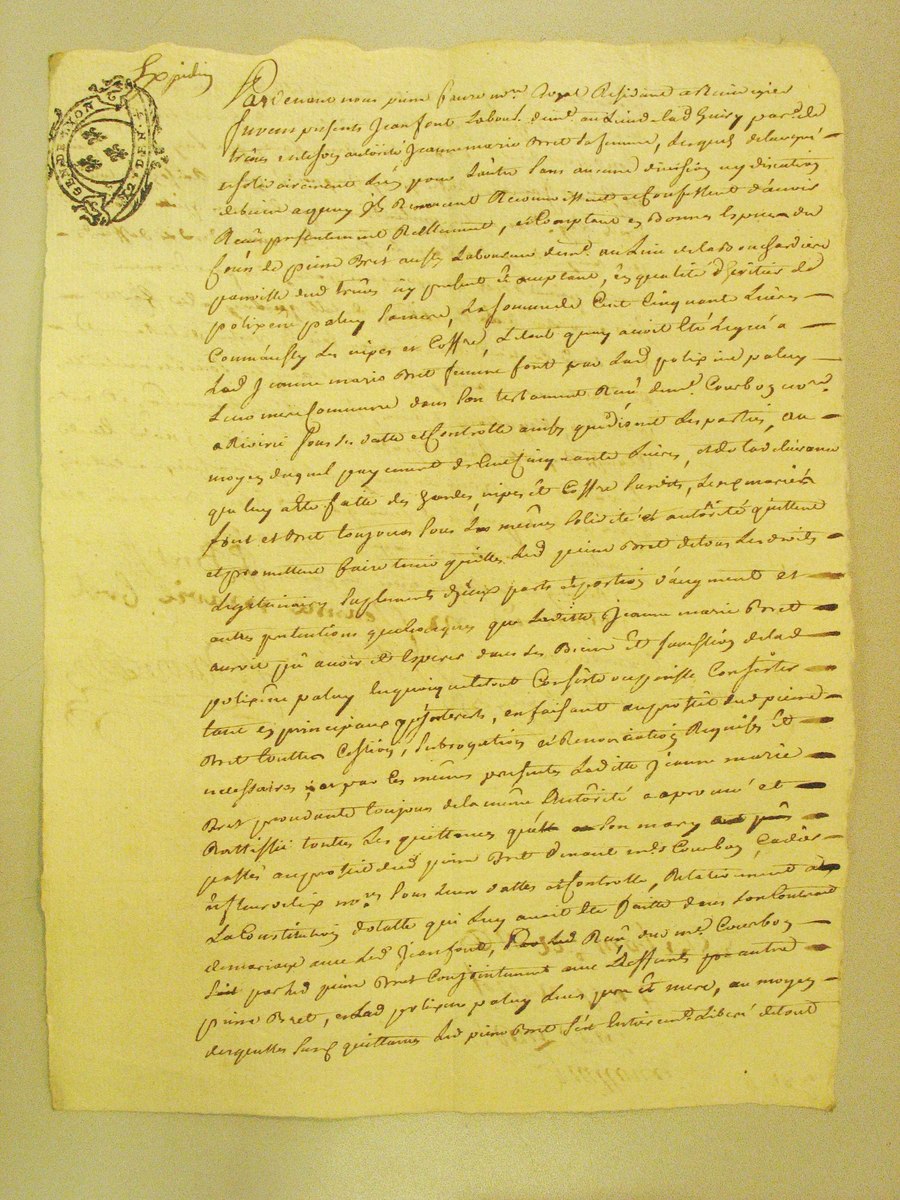 Expédiée
GEN. DE LYON
Pardevant nous pierre faure no.re Royal Residant a
furent presents Jean font Labour. dem.t au Lieu de par.sse de
trêves et de son autorité Jeanne marie Bret sa femme, Lesquels de leur gré
et solidairement L'un pour L'autre sans aucune division ny discution
de biens a quoy Ils Renoncent Reconnoissent et Confessent d'avoir
Reçu présentement Réellement, et Comptant en Bonnes Especes du
Cours de pierre Bret aussy Laboureur dem.t au Lieu de la Bouchardiere
parroisse dud trêves icy present et acceptant, en qualité d'héritier de
polixene paley sa mere, La somme de Cent Cinquante Livres
Comm'aussy Les nipes et Coffre, Le tout quoy avoit été Légué a
Lad Jeanne marie Bret femme font par Lad polixene paley
Leur mere Commune dans son testament Reçu dem.e Courbon no.re
a Rivirie sous sa datte et Controlle ainsy que disent Les parties, au
moyen duquel payement de Cent Cinquante Livres, et de la délivrance
que luy a été faitte des hardes, nipes et Coffre susdits, Lesd mariés
font et Bret toujours sous Les mêmes solidité et autôrité quittent
et promettent faire tenir quitte Led pierre Bret de tous Les droits
Legitimaires suplements d'iceux parts et portion d'augment et
autres prétentions quelconques que Laditte Jeanne marie Bret
auroit pû avoir et Esperer dans Les Biens et succession de lad
polixene paley En quoy que le tout Consiste ou puisse Consister
tant en principaux qu'interests, en faisant au profit dud pierre
Bret toutes Cessions, subrogation et Renonciation Requises et
nécessaires; et par Ces mêmes presentes Laditte Jeanne marie
Bret procédante toujours de la même Autôrité a aprouvé et
Rattiffié toutes Les quittances que son mary
passé au profit dud pierre Bret devant m.es Courbon, Cadier
no.res sous Leurs dattes et Controlle, Relativement a
La Constitution dotalle qui Luy avoit été faitte dans son Contrat
de mariage avec Led Jean font, Reçu dud m.e Courbon
soit par led pierre Bret Conjointement avec deffunts autre
pierre Bret, et Lad polixene paley Leurs pere et mere, au moyen
desquelles susd quittances Led pierre Bret sera Entierem.t Libéré de tout